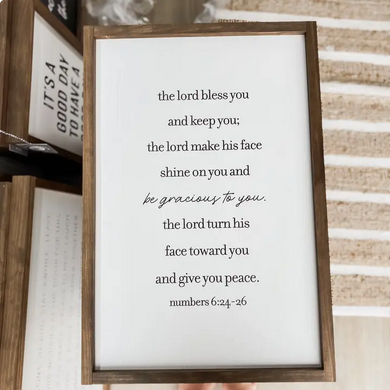 the lord bless you
and keep you;
the lord make his face
shine on you and
be gracious to you.
the lord turn his
face toward you
and give you peace.
numbers 6:24-26
IT'S A
GOOD DAY
TO HAVE A